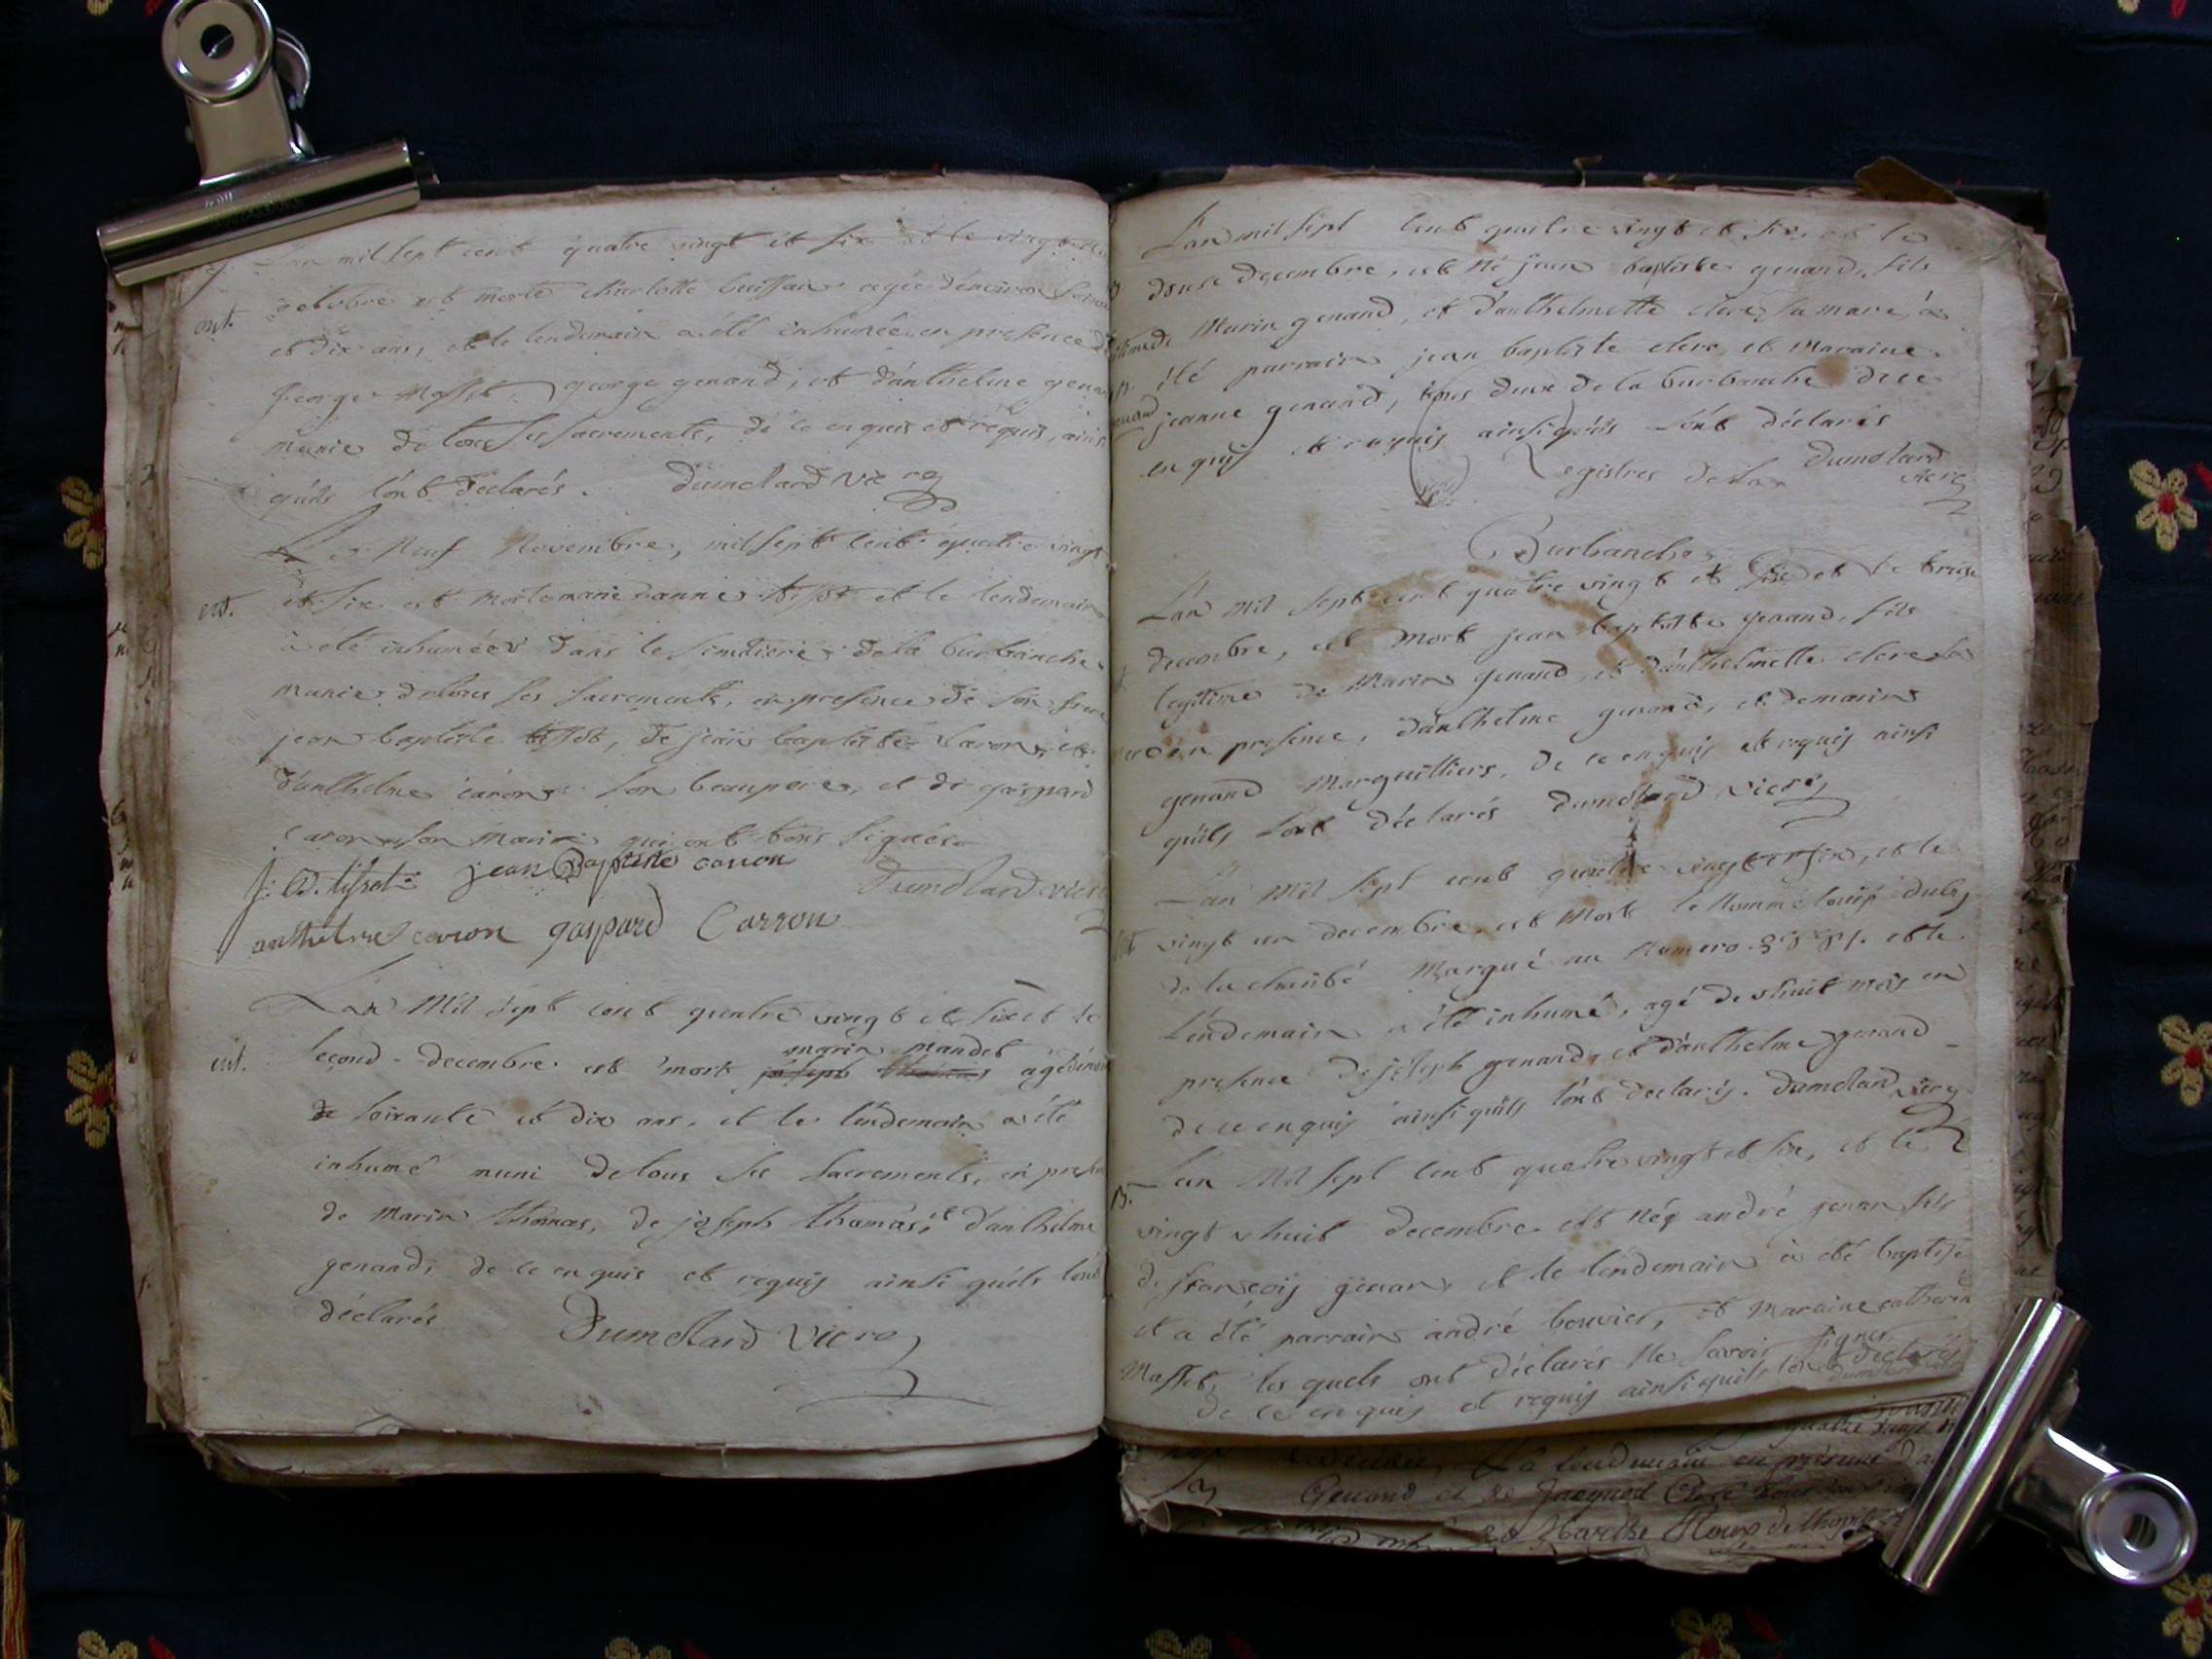 L'an mil sept cent quatre vingt et six et le vingt
octobre est morte charlotte buissaire agée d'environ
ent.
et dix ans, et le lendemain a été inhumée, en presence
george genand, et d'anthelme
munie de tous ses sacrements, de ce enquis et requis, ainsi
qu'ils l'ont déclarés. Dumollard vic re
Le Neuf Novembre, mil sept cent quatre vingt
et six est morte marie danne tisset et le lendemain
ent.
a été inhumée dans le simetiere de la burbanche
munie de tous ses sacrements, en presence de son frere
jean baptiste tisset, de jean baptiste caron, et
d'anthelme caron son beaupere, et de gaspard
caron son mari qui ont tous signés
j: B. tisset jean Baptiste carron
Dumollard vicre
anthelme caron gaspard Carron
L'an Mil sept cent quatre vingt et six et le
marin mandet
ent.
second decembre est mort joseph thomas agé
de soixante et dix ans, et le lendemain a été
inhumé muni de tous ses sacrements, en
de Marin thomas, de joseph thomas, et d'anthelme
genand, de ce enquis et requis ainsi qu'ils l'ont
déclarés Dumollard Vicre
L'an mil sept cent quatre vingt et six et le
douse decembre, est Né jean baptiste genand, fils
Marin genand, et d'anthelmette clerc sa mare, a
été parrain jean baptiste clerc, et Maraine
jeanne genand, tous deux de la burbanche de ce
enquis et requis ainsi qu'ils l'ont déclarés
Dumollard vicre
Registres de la
Burbanche
L'an mil sept cent quatre vingt et six et le treise
decembre, est mort jean baptiste genand, fils
legitime de Marin genand, et d'anthelmette clerc
en presence, d'anthelme genand, et de marin
genand Marguilliers, de ce enquis et requis ainsi
qu'ils l'ont déclarés Dumollard vicre
L'an Mil sept cent quatre vingt et six, et le
vingt un decembre, est Mort le Nommé louis
de la charité Marqué au Numero et le
lendemain a été inhumé, agé de huit mois en
presence de joseph genand, et d'anthelme genand
de ce enquis ainsi qu'ils l'ont declarés. Dumollard vicre
L'an Mil sept cent quatre vingt et six, et le
B.
vingt huit decembre est Né andré genan fils
de francois genan, et le lendemain a été baptisé
et a été parrain andré bouvier, et Maraine catherin
Masset, les quels ont déclarés Ne savoir signer
de ce enquis et requis ainsi qu'ils l'ont declarés
quatre vingt
Le lendemain en présence
Genand et de Jacques Clerc
Marthe Roux de l'hopital